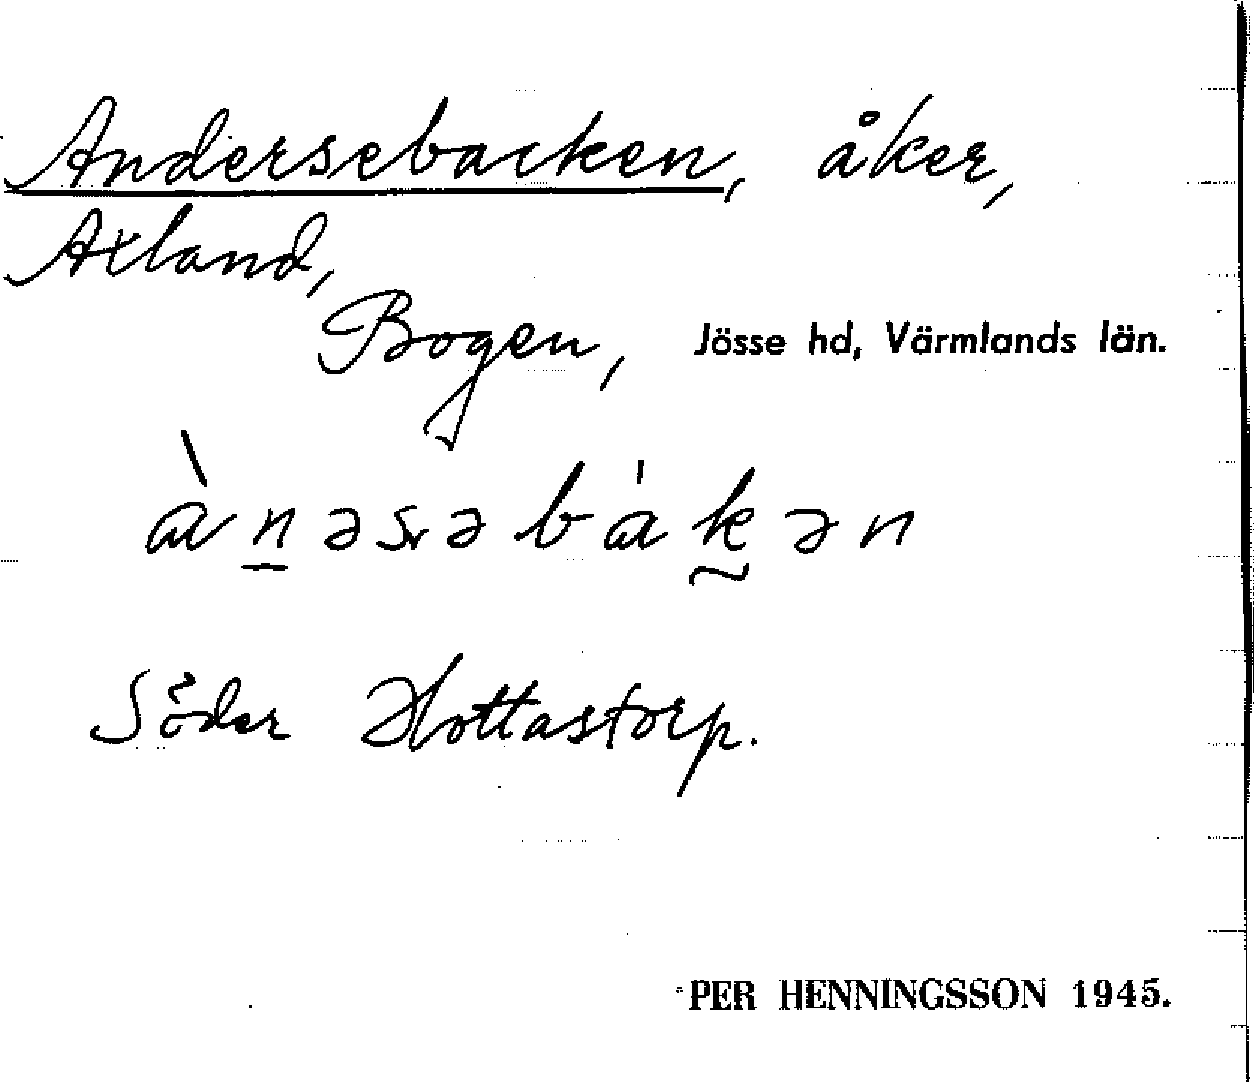 Andersebacken, åker,
Axland,
Bogen, Jösse hd, Värmlands län.
àn̲əsəbàk̰ən
Söder Hottastorp.
PER HENNINGSSON 1945.